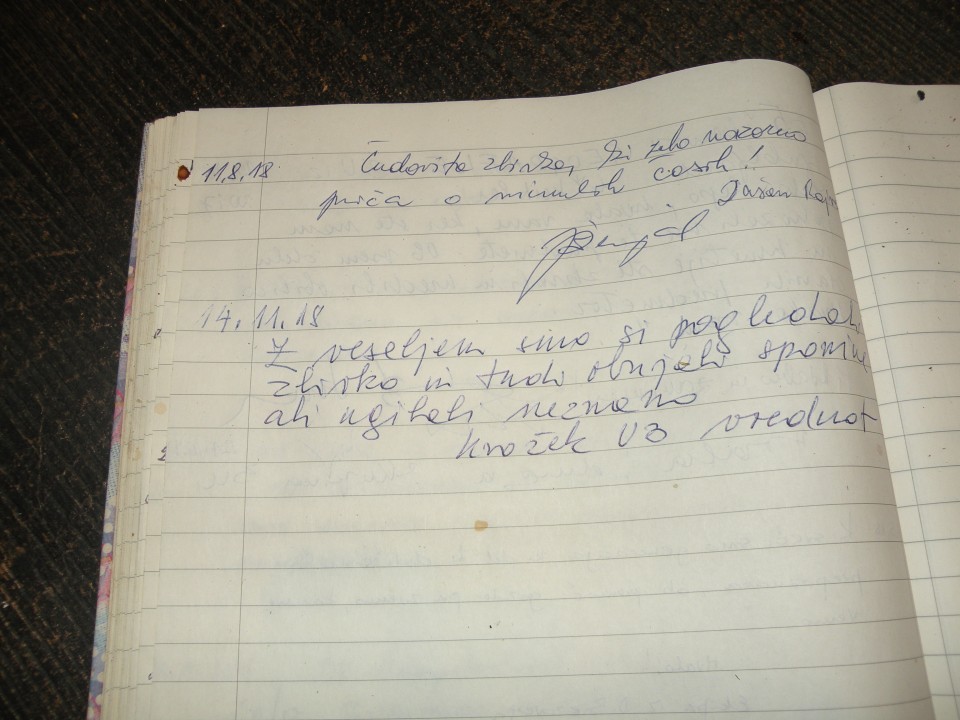 11.8.18 Čudovita zbirka, ki zelo nazorno
priča o minulih časih!
14.11.18
Z veseljem smo si pogledali
zbirko in tudi obujali spomine
ali ugibali neznano
Krožek U3 vrednot